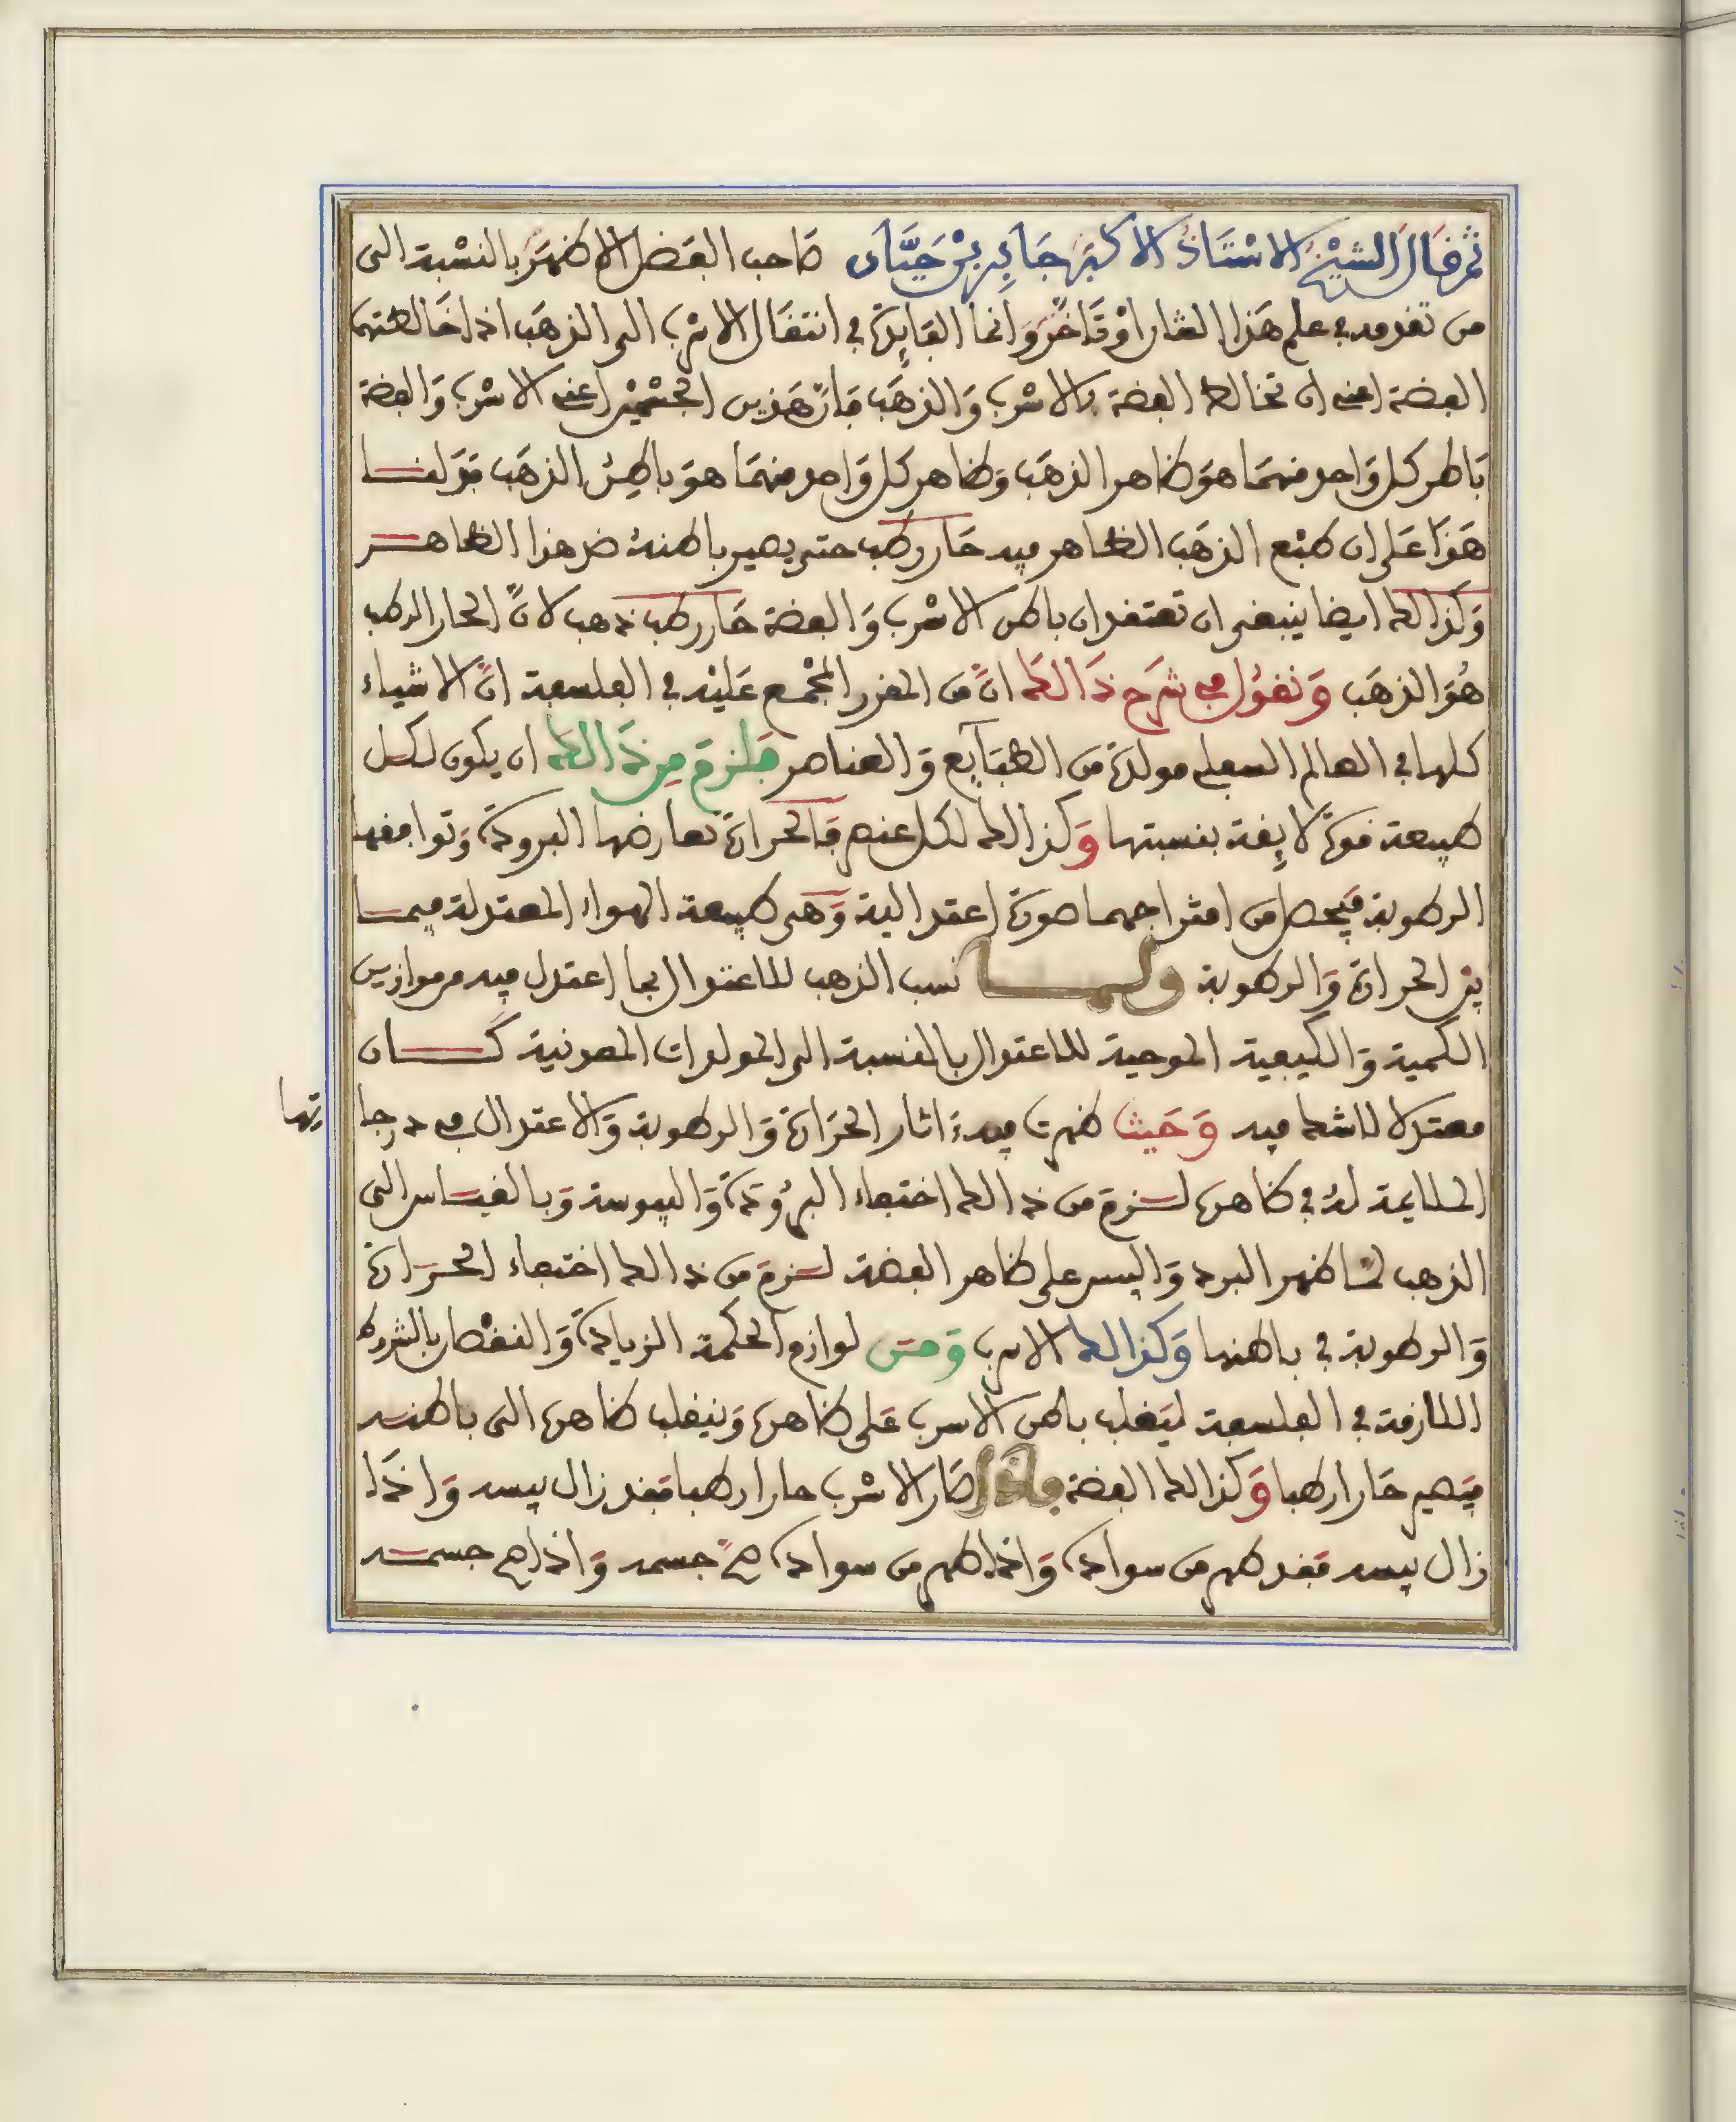 ثم قال الشيخ الاستاذ الاكبر جابر بن حيان صاحب الفضل الاظهر بالنسبة الى
من تقدمه في علم هذا الشان او تاخر وانما الفايدة في انتقال الاسرب الى الذهب اذا خالطتهما
الفضة اعني ان تخالط الفضة بالاسرب والذهب فان هذين الجسمين اعني الاسرب والفضة
باطن كل واحد منهما هو ظاهر الذهب وظاهر كل واحد منهما هو باطن الذهب فدلنا
هذا على ان طبع الذهب الظاهر فيه حار رطب حتى يصير باطنه ضد هذا الظاهر
وكذالك ايضا ينبغي ان تعتقد ان باطن الاسرب والفضة حار رطب ذهب لان الحار الرطب
هو الذهب ونقول في شرح ذالك ان من المقرر المجمع عليه في الفلسفة ان الاشياء
كلها في العالم السفلي مولدة من الطبايع والعناصر فلزم من ذالك ان يكون لكل
طبيعة قوة لايقة بنسبتها وكذالك لكل عنصر فالحرارة تعارضها البرودة وتوافقها
الرطوبة فيحصل من امتزاجهما صورة اعتدالية وهي طبيعة الهواء المعتدلة فيما
بين الحرارة والرطوبة ولما نسب الذهب للاعتدال بما اعتدل فيه من موازين
الكمية والكيفية الموجبة للاعتدال بالنسبة الى المولدات المعدنية كان
معتدلا لاشك فيه وحيث ظهرت فيه اثار الحرارة والرطوبة والاعتدال في درجا
تها
الملايمة له في ظاهره لزم من ذالك اختفاء البرودة واليبوسة وبالقياس الى
الذهب لما ظهر البرد واليبس على ظاهر الفضة لزم من ذالك اختفاء الحرارة
والرطوبة في باطنها وكذالك الاسرب ومن لوازم الحكمة الزيادة والنقصان بالشروط
اللازمة في الفلسفة ليقلب باطن الاسرب على ظاهره وينقلب ظاهره الى باطنه
فيصير حارا رطبا وكذالك الفضة فاذا صار الاسرب حارا رطبا فقد زال يبسه واذا
زال يبسه فقد طهر من سواده واذا طهر من سواده صح جسمه واذا صح جسمه